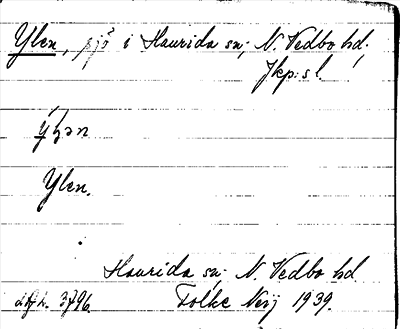 Ylen, sjö i Haurida sn; N. Vedbo hd;
Jkp:s l
Ylen.
Haurida sn; N. Vedbo hd.
3796. Folke Neij 1939.